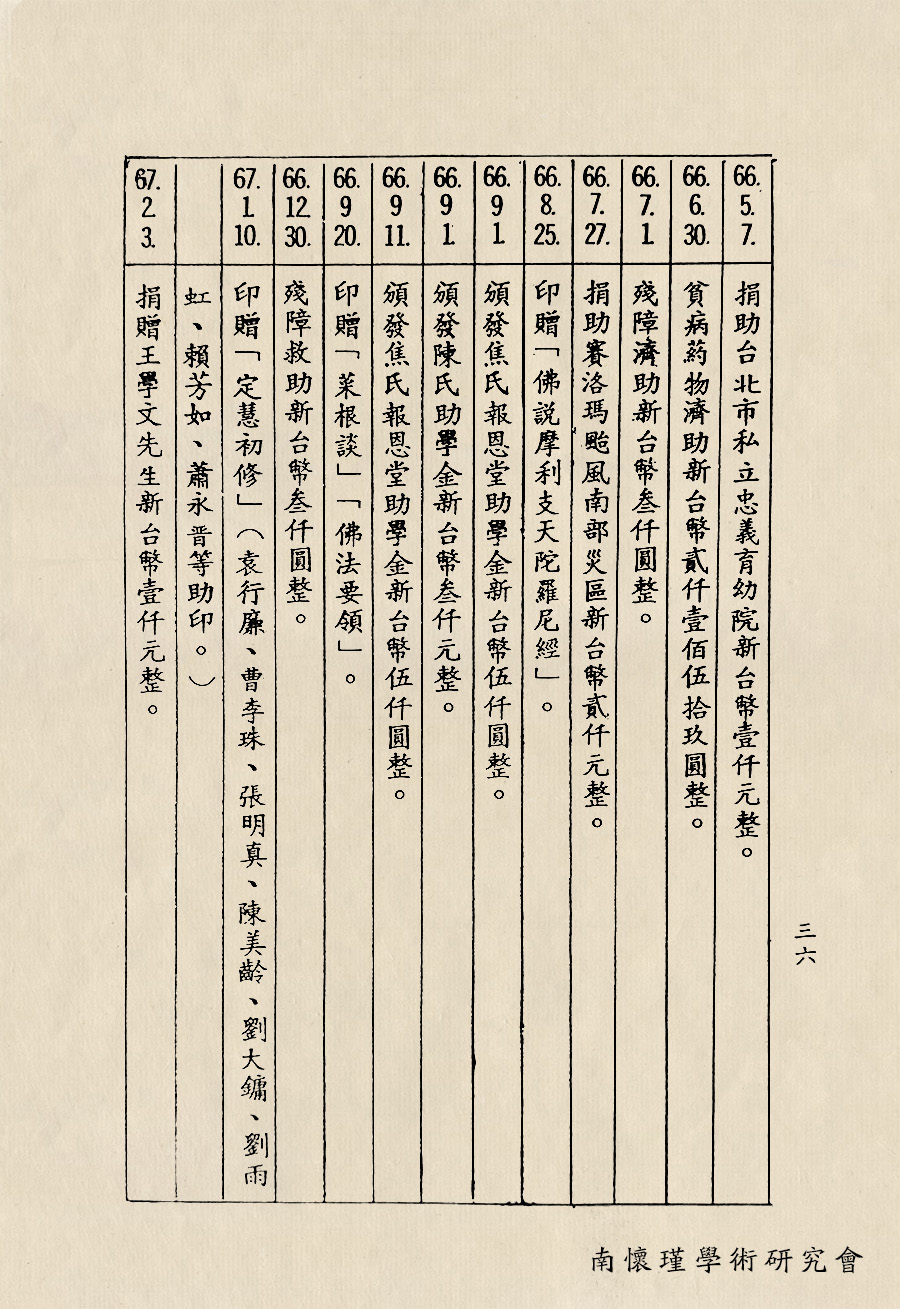 三六
66. 5. 7. 捐助台北市私立忠義育幼院新台幣壹仟元整。
66. 6. 30. 貧病葯物濟助新台幣貳仟壹佰伍拾玖圓整。
66. 7. 1. 殘障濟助新台幣叁仟圓整。
66. 7. 27. 捐助賽洛瑪颱風南部災區新台幣貳仟元整。
66. 8. 25. 印贈「佛説摩利支天陀羅尼經」。
66. 9 1. 頒發焦氏報恩堂助學金新台幣伍仟圓整。
66. 9 1. 頒發陳氏助學金新台幣叁仟元整。
66. 9 11. 頒發焦氏報恩堂助學金新台幣伍仟圓整。
66. 9 20. 印贈「菜根談」「佛法要領」。
66. 12. 30. 殘障救助新台幣叁仟圓整。
67. 1. 10. 印贈「定慧初修」（袁行廉、曹李珠、張明真、陳美齡、劉大鏞、劉雨
虹、賴芳如、蕭永晋等助印。）
67. 2. 3. 捐贈王學文先生新台幣壹仟元整。
南懷瑾學術研究會